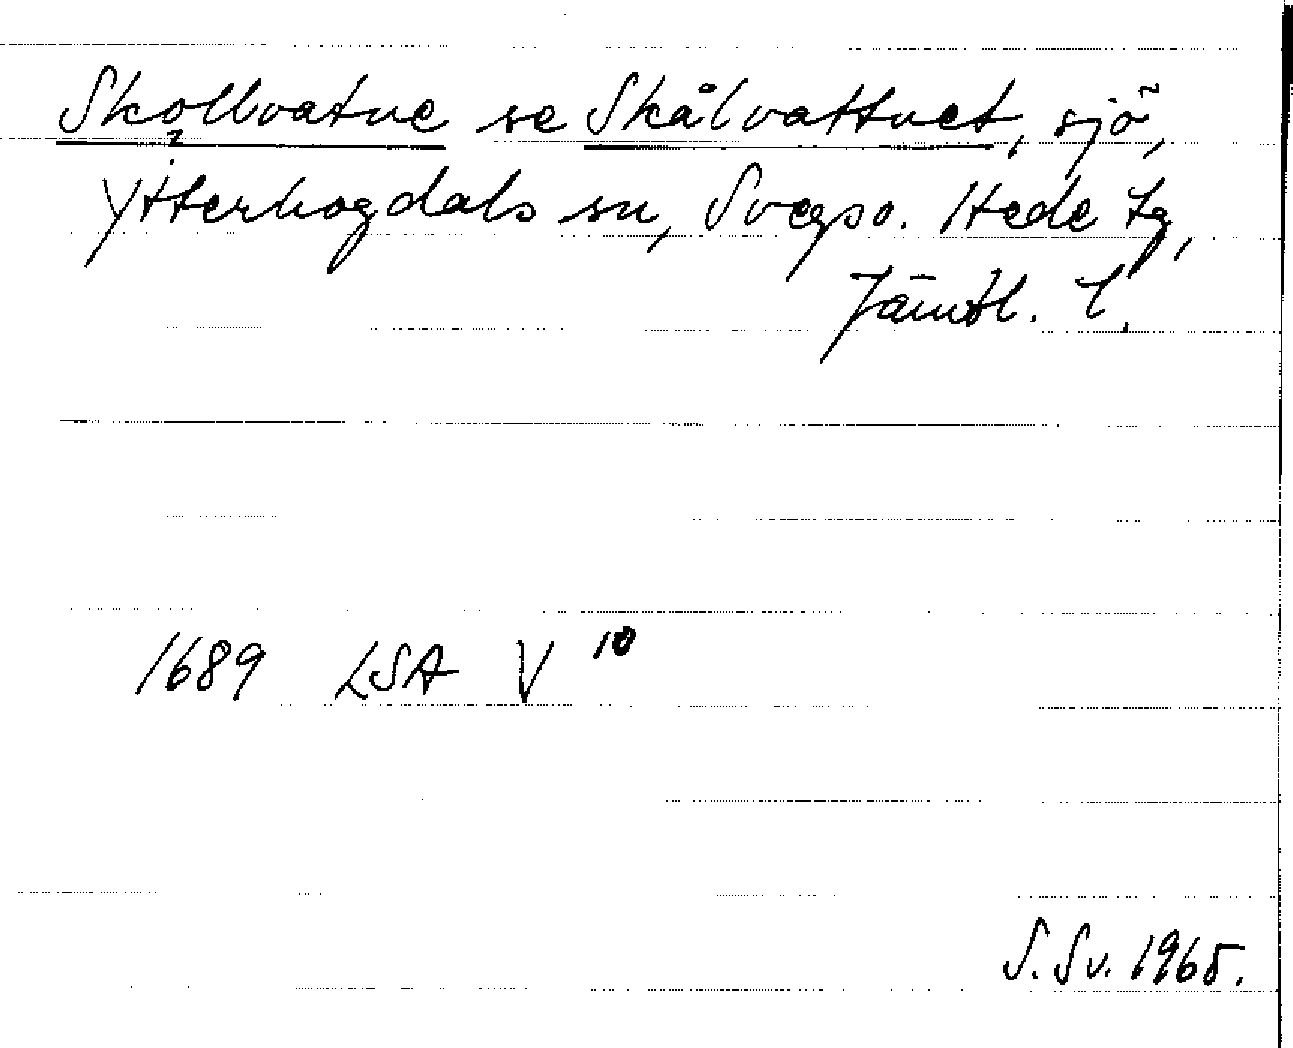 Skollvatne se Skålvattnet, sjö,
Ytterhogdals sn, Svegs o. Hede tg,
Jämtl. l.
1689 LSA V 10
S. Sv. 1965.